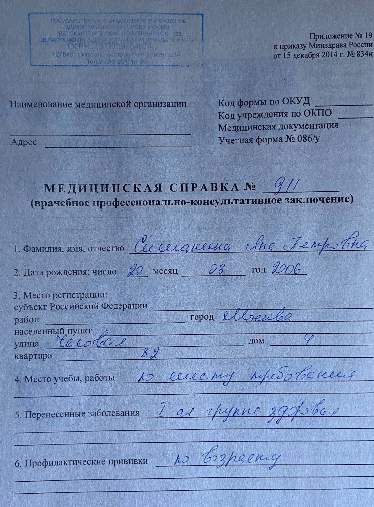 Приложение № 19
к приказу Минздрава России
от 15 декабря 2014 г. № 834н
Наименование медицинской организации
Код формы по ОКУД
Код учреждения по ОКПО
Медицинская документация
Адрес
Учетная форма № 086/у
МЕДИЦИНСКАЯ СПРАВКА № 911
(врачебное профессионально-консультативное заключение)
1. Фамилия, имя, отчество Петровна
2. Дата рождения: число 20 месяц 03 год 2006
3. Место регистрации:
субъект Российской Федерации
район город Москва
населенный пункт
улица Часовая дом 4
квартира 82
4. Место учебы, работы по месту требования
5. Перенесенные заболевания I ая группа здоровья
6. Профилактические прививки по возрасту